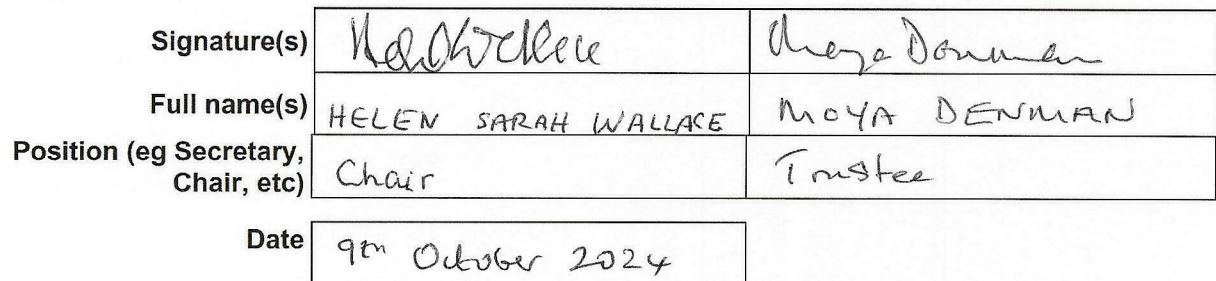 Signature(s)
Full name(s) HELEN SARAH WALLACE MOYA DENMAN
Position (eg Secretary,
Chair, etc) Chair Trustee
Date 9th October 2024